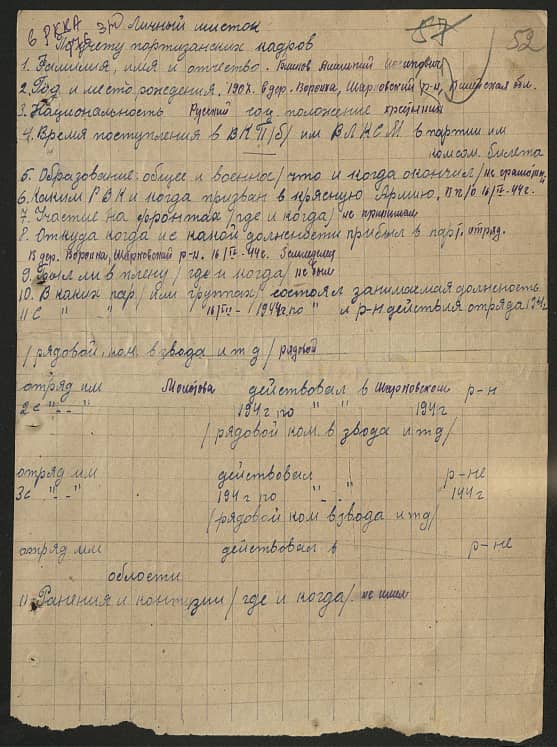 в РККА
Личный листок
57
52
По учету партизанских кадров
1. Фамилия, имя и отчество.
2. Год и место рождения. 190 дер. Воронка, Шарковский р-н,
3. Национальность Русский соц. положение крестьянин
4. Время поступления в ВКП/б/ им ВЛКСМ в партии им
комсом. билета
5. Образование: общее и военное/ что и когда окончил/ не грамотн.
6. Каким РВК и когда призван в красную Армию. 16/IV-44г.
7. Участие на фронтах /где и когда/ не принимал
8. Откуда когда и с какой должности прибыл в пар. отряд.
дер. Воронка, Шарковский р-н. 16/IV-44г.
9. Был ли в плену/ где и когда/ не был
10. В каких пар/ или группах/ состоял занимаемая должность
1) С " " "16/IV - 1944г. по " и р-н действия отряда 194 г
/рядовой, ком. взвода и т д/ рядовой
отряд им Молотова действовал в Шарковском р-н
2 с "- -" 194 г. по " " 194 г
/рядовой ком. взвода и тд/
отряд им действовал р-не
3 с "- -" 194 г по "- -" 144 г
/рядовой ком взвода и тд/
отряд им действовал в р-не
области
11. Ранения и контузии/ где и когда/. не имел